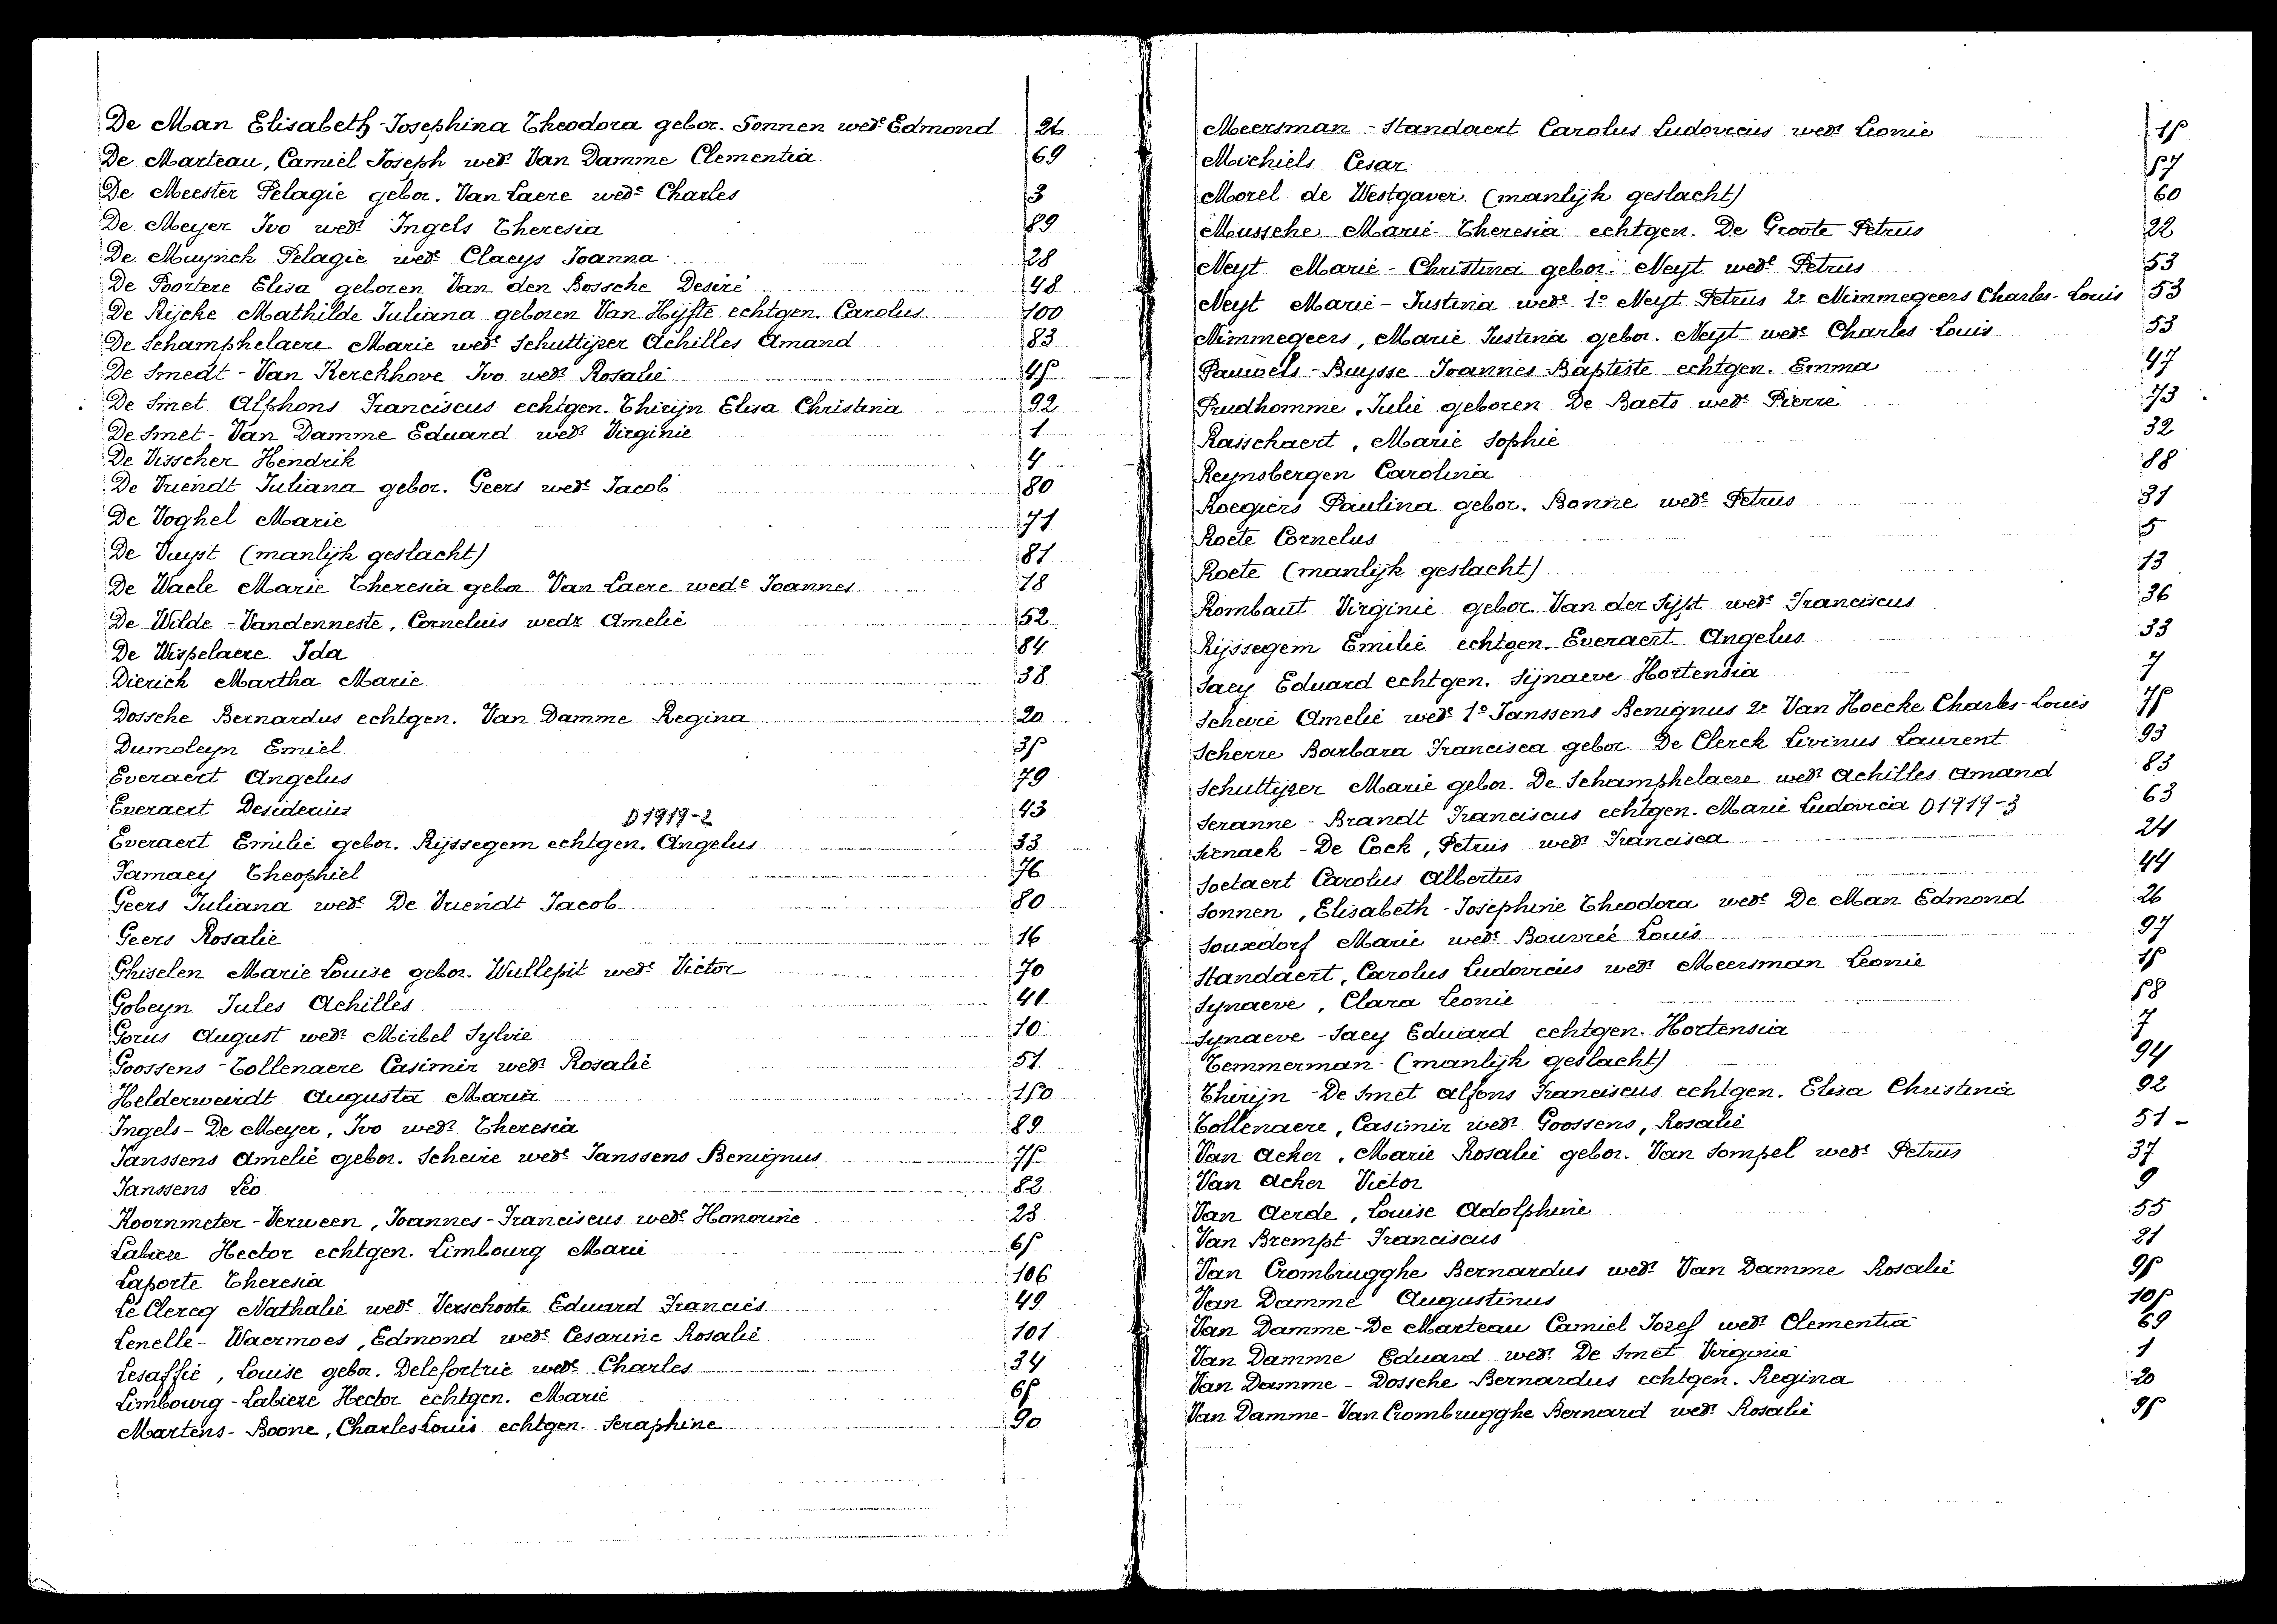 De Man Elisabeth-Josephina Theodora gebor. Sonnen wede Edmond 26
De Marteau, Camiel Joseph wedr Van Damme Clementia 69
De Meester Pelagie gebor. Van Laere wede Charles 3
De Meyer Ivo wedr Ingels Theresia 89
De Muynck Pelagie wede Claeys Joanna 28
De Poortere Elisa geboren Van den Bossche Desiré 48
De Rijcke Mathilde Juliana geboren Van Hijfte echtgen. Carolus 100
De Schamphelaere Marie wede Schuttijzer Achilles Amand 83
De Smedt - Van Kerckhove Ivo wedr Rosalie 45
De Smet Alphons Franciscus echtgen. Thirijn Elisa Christina 92
De Smet - Van Damme Eduard wedr Virginie 1
De Visscher Hendrik 4
De Vriendt Juliana gebor. Geers wede Jacob 80
De Voghel Marie 71
De Vuyst (manlijk geslacht) 81
De Waele Marie Theresia gebor. Van Laere wede Joannes 18
De Wilde - Vandenneste, Cornelius wedr Amelie 52
De Wispelaere Ida 84
Dierick Martha Marie 38
Dossche Bernardus echtgen. Van Damme Regina 20
Dumoleyn Emiel 35
Everaert Angelus 79
Everaert Desiderius 43
D1919-2
Everaert Emilie gebor. Rijssegem echtgen. Angelus 33
Famaey Theophiel 76
Geers Juliana wede De Vriendt Jacob 80
Geers Rosalie 16
Ghiselen Marie Louise gebor. Wullepit wede Victor 70
Gobeyn Jules Achilles 41
Gorus August wedr Mirbel Sylvie 10
Goossens - Tollenaere Casimir wedr Rosalie 51
Helderweirdt Augusta Maria 150
Ingels - De Meyer, Ivo wedr Theresia 89
Janssens Amelie gebor. Scheire wede Janssens Benignus 75
Janssens Leo 82
Koornmeter - Verween, Joannes-Franciscus wedr Honorine 23
Labiere Hector echtgen. Limbourg Marie 65
Laporte Theresia 106
Le Clercq Nathalie wede Verschoote Eduard Francies 49
Lenelle - Waermoes, Edmond wedr Cesarine Rosalie 101
Lesaffie, Louise gebor. Delefortrie wede Charles 34
Limbourg - Labiere Hector echtgen. Marie 65
Martens - Boone, Charles Louis echtgen. Seraphine 90
Meersman - Standaert Carolus Ludovicus wedr Leonie 15
Michiels Cesar 57
Morel de Westgaver (manlijk geslacht) 60
Mussche Marie-Theresia echtgen. De Groote Petrus 22
Neyt Marie - Christina gebor. Neyt wede Petrus 53
Neyt Marie - Justinia wede 1o Neyt Petrus 2o Nimmegeers Charles-Louis 53
Nimmegeers, Marie Justina gebor. Neyt wede Charles Louis 53
Pauwels - Buysse Joannes Baptiste echtgen. Emma 47
Prudhomme, Julie geboren De Baets wede Pierre 73
Rasschaert, Marie Sophie 32
Reynsbergen Carolina 88
Roegiers Paulina gebor. Bonne wede Petrus 31
Roete Cornelus 5
Roete (manlijk geslacht) 13
Rombaut Virginie gebor. Van der Sijpt wede Franciscus 36
Rijssegem Emilie echtgen. Everaert Angelus 33
Saey Eduard echtgen. Sijnaeve Hortensia 7
Scheire Amelie wede 1o Janssens Benignus 2o Van Hoecke Charles-Louis 75
Scherre Barbara Francisca gebor. De Clerck Livinus Laurent 93
Schuttijzer Marie gebor. De Schamphelaere wede Achilles Amand 83
Seranne - Brandt Franciscus echtgen. Marie Ludovica D1919-3 63
Sienaek - De Cock, Petrus wedr Francisca 24
Soetaert Carolus Albertus 44
Sonnen, Elisabeth - Josephine Theodora wede De Man Edmond 26
Souxdorf Marie wede Bouvreé Louis 97
Standaert, Carolus Ludovicus wedr Meersman Leonie 15
Synaeve, Clara Leonie 58
Synaeve - Saey Eduard echtgen. Hortensia 7
Temmerman (manlijk geslacht) 94
Thirijn - De Smet Alfons Franciscus echtgen. Elisa Christina 92
Tollenaere, Casimir wedr Goossens, Rosalie 51 -
Van Acker, Marie Rosalie gebor. Van Sompel wede Petrus 37
Van Acker Victor 9
Van Aerde, Louise Adolphine 55
Van Brempt Franciscus 21
Van Crombrugghe Bernardus wedr Van Damme Rosalie 95
Van Damme Augustinus 105
Van Damme - De Marteau Camiel Jozef wedr Clementia 69
Van Damme Eduard wedr De Smet Virginie 1
Van Damme - Dossche Bernardus echtgen. Regina 20
Van Damme - Van Crombrugghe Bernard wedr Rosalie 95